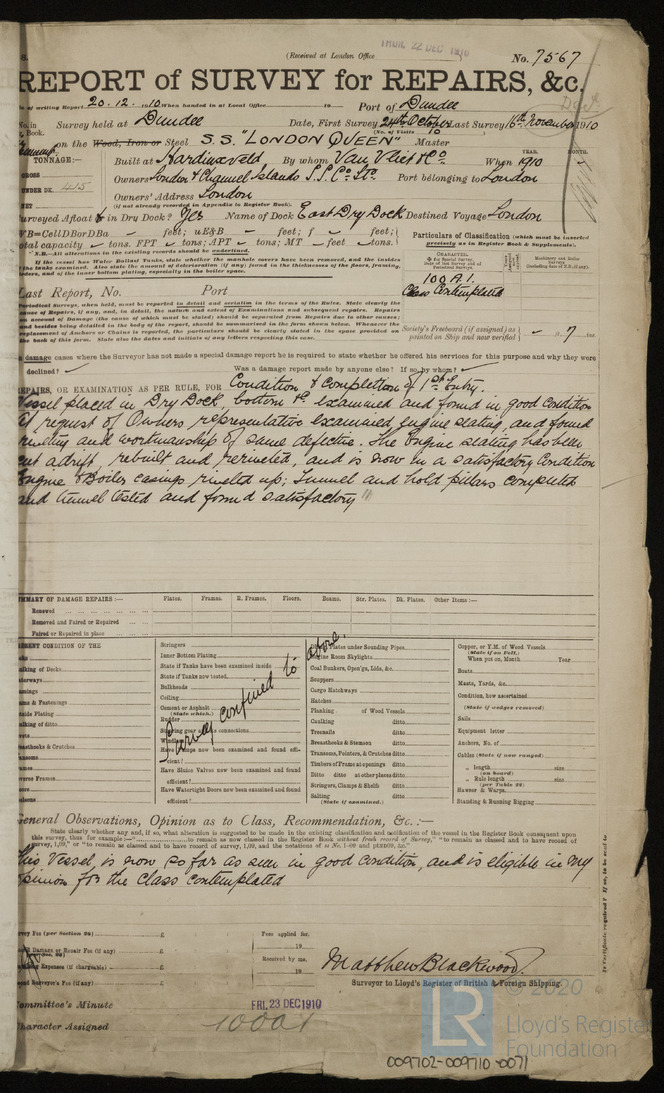 THUR. 22 DEC 1910
(Received at London Office
No. 7567
REPORT of SURVEY for REPAIRS, &c.
of writing Report 20.12.1910 When handed in at Local Office 19 Port of Dundee
No. in Survey held at Dundee Date, First Survey 24th October Last Survey 16th November 1910
Book. (No. of Visits 10
on the Wood, Iron or Steel S.S. "LONDON QUEEN" Master
TONNAGE:— Built at Hardinxveld By whom Van Vliet & Co When 1910
YEAR. MONTH.
GROSS Owners London & Channel Islands S.S. Co. Ltd. Port belonging to London
UNDER DK. 415 Owners' Address London
NET (if not already recorded in Appendix to Register Book).
Surveyed Afloat & in Dry Dock? Yes Name of Dock East Dry Dock Destined Voyage London
WB=CellDBorDBa feet; uE&B feet; f feet;
total capacity tons. FPT tons; APT tons; MT feet tons.
N.B.—All alterations in the existing records should be underlined.
Particulars of Classification (which must be inserted
precisely as in Register Book & Supplements).
CHARACTER.
100 A.1.
Class Contemplated
Last Report, No. Port
Periodical Surveys, when held, must be reported in detail and seriatim in the terms of the Rules. State clearly the
cause of Repairs, if any, and, in detail, the nature and extent of Examinations and subsequent repairs. Repairs
on account of Damage (the cause of which must be stated) should be separated from Repairs due to other causes;
and besides being detailed in the body of the report, should be summarized in the form shown below. Whenever the
Replacement of Anchors or Chains is reported, the particulars should be clearly stated in the space provided on
the back of this form. State also the dates and initials of any letters respecting this case.
Society's Freeboard (if assigned) as
painted on Ship and now verified
ft. 7 ins.
In damage cases where the Surveyor has not made a special damage report he is required to state whether he offered his services for this purpose and why they were
declined? Was a damage report made by anyone else? If so, by whom?
REPAIRS, OR EXAMINATION AS PER RULE, FOR Condition & Completion of 1st Entry.
Vessel placed in Dry Dock, bottom &c examined and found in good condition
At request of Owners representative examined engine seating, and found
riveting and workmanship of same defective. The Engine seating has been
cut adrift, rebuilt and reriveted, and is now in a satisfactory condition
Engine & Boiler casings riveted up; Tunnel and hold pillars completed
and tunnel tested and found satisfactory
SUMMARY OF DAMAGE REPAIRS:— Plates. Frames. R. Frames. Floors. Beams. Str. Plates. Dk. Plates. Other Items:—
Renewed
Removed and Faired or Repaired
Faired or Repaired in place
PRESENT CONDITION OF THE
Decks
Caulking of Decks
Waterways
Beams & Fastenings
Outside Plating
Caulking of ditto
Rivets
Breasthooks & Crutches
Transoms
Frames
Reverse Frames
Floors
Keelsons
Stringers
Inner Bottom Plating
State if Tanks have been examined inside
State if Tanks now tested
Bulkheads
Ceiling
Cement or Asphalt
(State which.)
Rudder
Steering gear and connections
Windlass
Have Pumps now been examined and found effi-
cient?
Have Sluice Valves now been examined and found
efficient?
Have Watertight Doors now been examined and found
efficient?
Survey confined to above.
Plates under Sounding Pipes
Engine Room Skylights
Coal Bunkers, Open'gs, Lids, &c.
Scuppers
Cargo Hatchways
Hatches
Planking of Wood Vessels
Caulking ditto
Treenails ditto
Breasthooks & Stemson ditto
Transoms, Pointers, & Crutches ditto
Timbers of Frame at openings ditto
Ditto ditto at other places ditto
Stringers, Clamps & Shelfs ditto
Salting ditto
(State if examined.)
Copper, or Y.M. of Wood Vessels
(State if on Felt.)
When put on, Month Year
Boats
Masts, Yards, &c.
Condition, how ascertained
(State if wedges removed)
Sails
Equipment letter
Anchors, No. of
Cables (State if now ranged)
" length size
(on board)
" Rule length size
(per Table 22)
Hawser & Warps
Standing & Running Rigging
General Observations, Opinion as to Class, Recommendation, &c.:—
State clearly whether any and, if so, what alteration is suggested to be made in the existing classification and notification of the vessel in the Register Book consequent upon
this survey, thus for example:—"to remain as now classed in the Register Book without fresh record of Survey," "to remain as classed and to have record of
survey, 1,09," or "to remain as classed and to have record of survey, 1,09, and the notations of ss No. 1-09 and pts ND09, &c."
This Vessel is now so far as seen in good condition, and is eligible in my
opinion for the class contemplated
Survey Fee (per Section 28) £
Special Damage or Repair Fee (if any) £
Travelling Expenses (if chargeable) £
Second Surveyor's Fee (if any) £
Fees applied for.
19
Received by me.
19
Matthew Blackwood.
Surveyor to Lloyd's Register of British & Foreign Shipping.
Committee's Minute FRI. 23 DEC 1910
Character Assigned 100A1
Is Certificate required? If so, to be sent to
© 2020
LR
Lloyd's Register
Foundation
009702-009710-0071